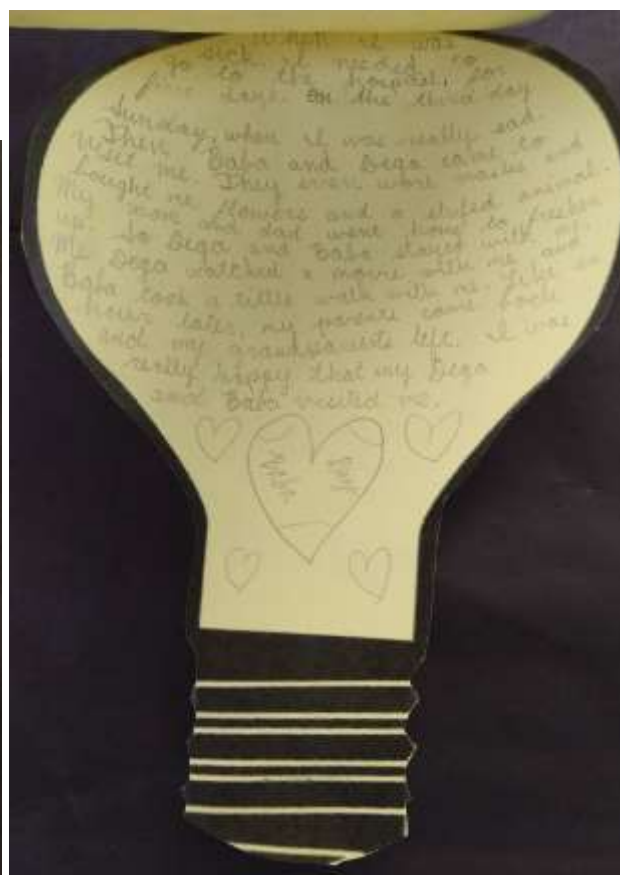 When I was
so sick, I needed to
go to the hospital for
five days. On the third day
Sunday, when I was really sad.
Then, Baba and Dega came to
visit me. They even wore masks and
bought me flowers and a stufed animal.
My mom and dad went home to freshen
up. So Dega and Baba stayed with me.
Me Dega watched a movie with me and
Baba took a little walk with me. Like an
hour later, my parents came back
and my grandparents left. I was
really happy that my Dega
and Baba visited me.
Baba